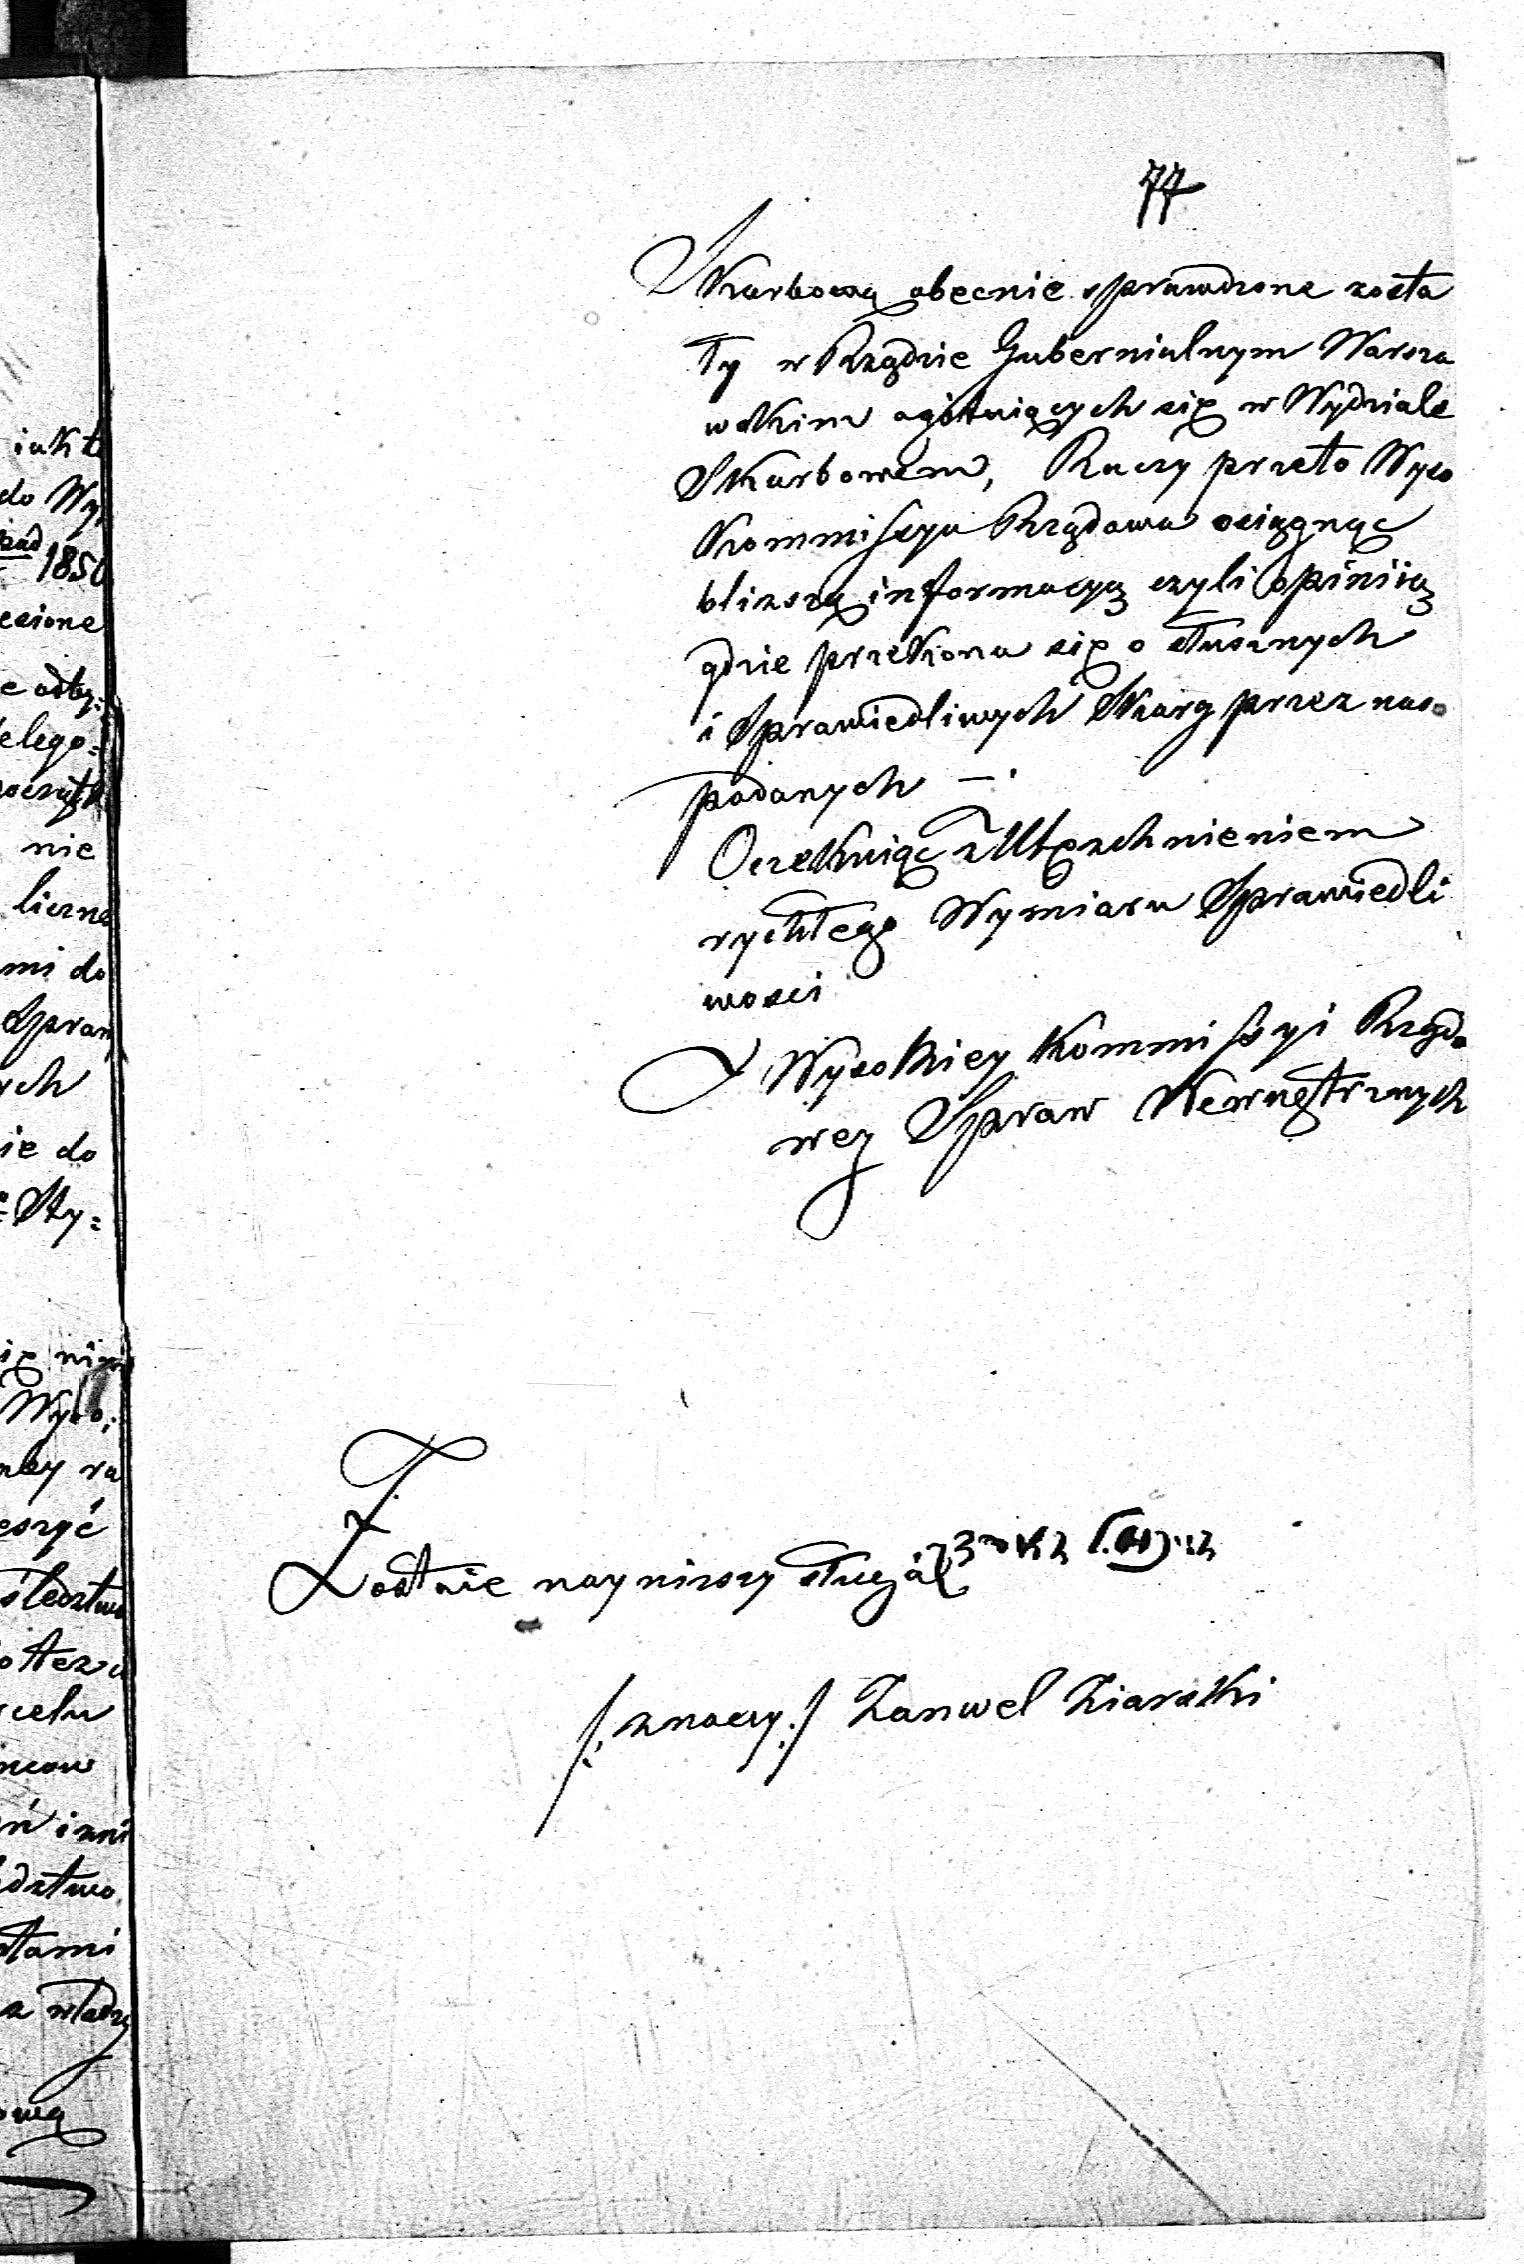 77
Skarbową obecnie sprawdzone zosta
ły w Rządzie Gubernialnym Warsza
wskim ogółniących się w Wydziale
Skarbowem, Raczy przeto Wyso
Kommissya Rządowa osiągnąć
bliższą informacyą czyli opiniią
gdzie przekona się o słusznych
i Sprawiedliwych Skarg przez nas
podanych —.
Oczekuiąc z Utęzchnieniem
rychłego Wymiaru Sprawiedli
wosci
Wysokiey Kommissyi Rządo
wey Spraw Wewnętrznych
Zostaie nayniższy sługa
/: znaczy :/ Zanwel Ziaratki
iak te
do Wy
1850
esione
e odby:
elego:
nie
liczne
mi do
Spraw
ych
ie do
Sty:
Wyso:
eszyć
śledztwo
celu
dztwo
stami
z władzy
ową